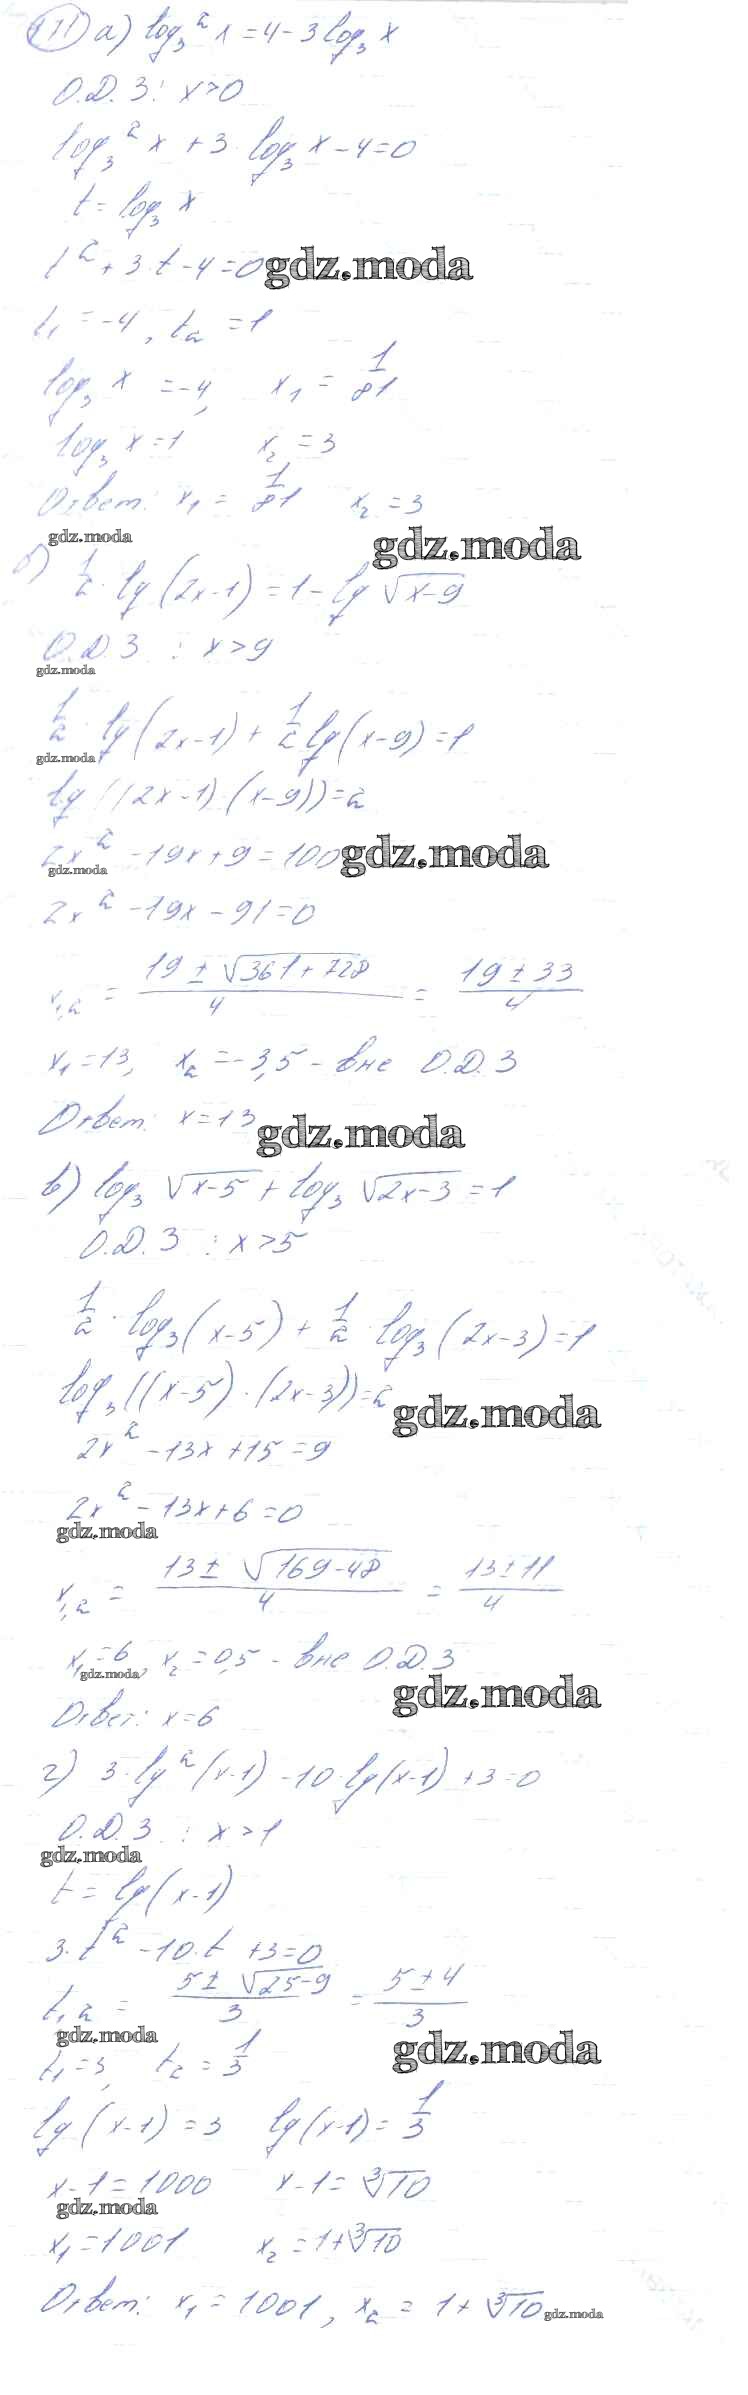 171 а) log₃² x = 4 - 3 log₃ x
О.Д.З: x > 0
log₃² x + 3 · log₃ x - 4 = 0
t = log₃ x
t² + 3·t - 4 = 0 gdz.moda
t₁ = -4, t₂ = 1
log₃ x = -4, x₁ = 1/81
log₃ x = 1 x₂ = 3
Ответ: x₁ = 1/81 x₂ = 3
gdz.moda gdz.moda
б) 1/2 · lg(2x-1) = 1 - lg √(x-9)
О.Д.З : x > 9
gdz.moda
1/2 · lg(2x-1) + 1/2 lg(x-9) = 1
gdz.moda
lg((2x-1)·(x-9)) = 2
2x² - 19x + 9 = 100 gdz.moda
gdz.moda
2x² - 19x - 91 = 0
x₁,₂ = (19 ± √(361 + 728))/4 = (19 ± 33)/4
x₁ = 13, x₂ = -3,5 - вне О.Д.З
Ответ: x = 13 gdz.moda
в) log₃ √(x-5) + log₃ √(2x-3) = 1
О.Д.З : x > 5
1/2 · log₃(x-5) + 1/2 · log₃(2x-3) = 1
log₃((x-5)·(2x-3)) = 2 gdz.moda
2x² - 13x + 15 = 9
2x² - 13x + 6 = 0
gdz.moda
x₁,₂ = (13 ± √(169-48))/4 = (13 ± 11)/4
x₁ = 6, x₂ = 0,5 - вне О.Д.З
gdz.moda gdz.moda
Ответ: x = 6
г) 3·lg²(x-1) - 10·lg(x-1) + 3 = 0
О.Д.З : x > 1
gdz.moda
t = lg(x-1)
3·t² - 10·t + 3 = 0
t₁,₂ = (5 ± √(25-9))/3 = (5 ± 4)/3
gdz.moda gdz.moda
t₁ = 3, t₂ = 1/3
lg(x-1) = 3 lg(x-1) = 1/3
x-1 = 1000 x-1 = ∛10
gdz.moda
x₁ = 1001 x₂ = 1+∛10
Ответ: x₁ = 1001, x₂ = 1+∛10 gdz.moda